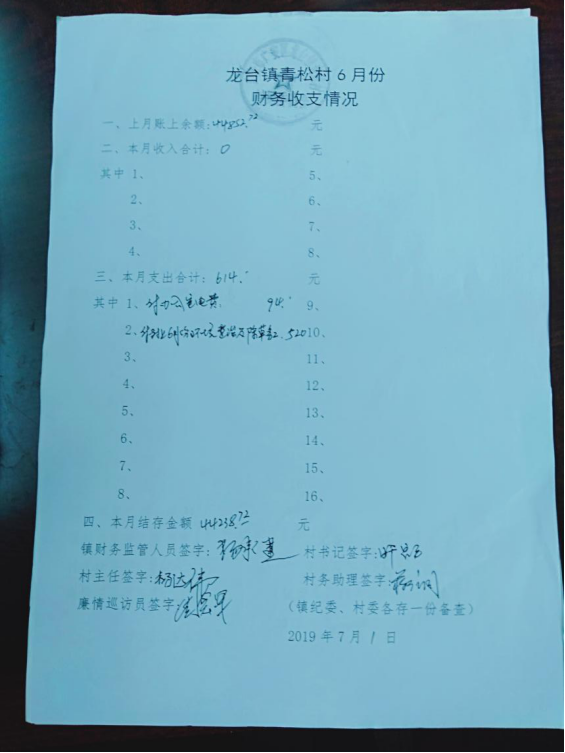 龙台镇青松村6月份
财务收支情况
一、上月账上余额:44852.72 元
二、本月收入合计:0 元
其中 1、 5、
2、 6、
3、 7、
4、 8、
三、本月支出合计:614. 元
其中 1、付办公室电费 94. 9、
2、 520 10、
3、 11、
4、 12、
5、 13、
6、 14、
7、 15、
8、 16、
四、本月结存金额 44238.72 元
镇财务监管人员签字: 村书记签字:
村主任签字: 村务助理签字:
廉情巡访员签字: (镇纪委、村委各存一份备查)
2019年7月1日